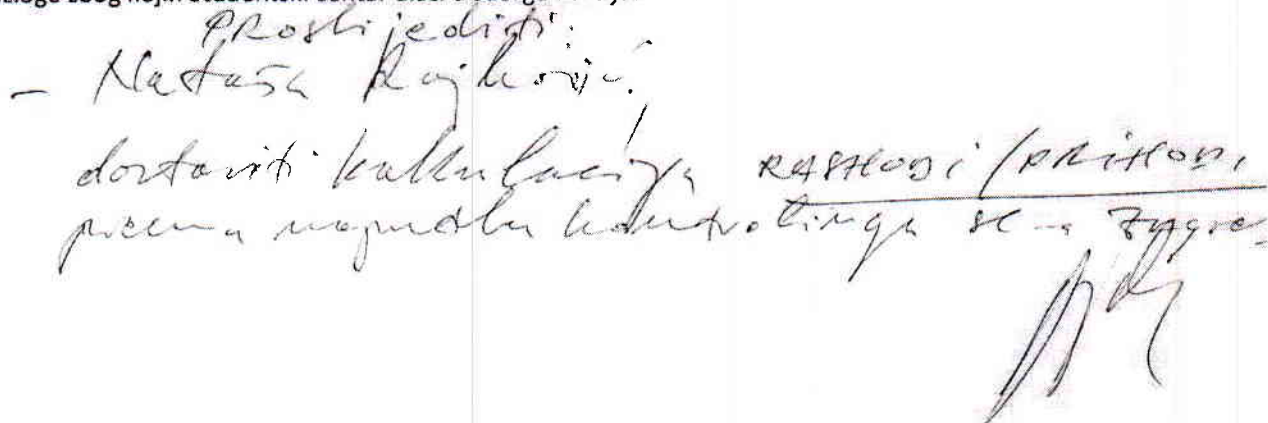 Proslijediti:
- Nataša Rajković,
dostaviti kalkulaciju RASHODI / PRIHODI,
prema naputku kontrolinga SC-a Zagreb